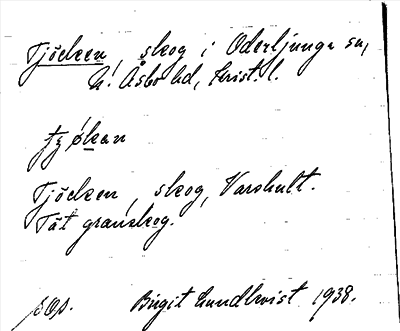 Tjöcken, skog i Oderljunga sn,
N. Åsbo hd, Krist. l.
Tjöcken, skog, Varshult.
Tät granskog.
Birgit Lundkvist 1938.